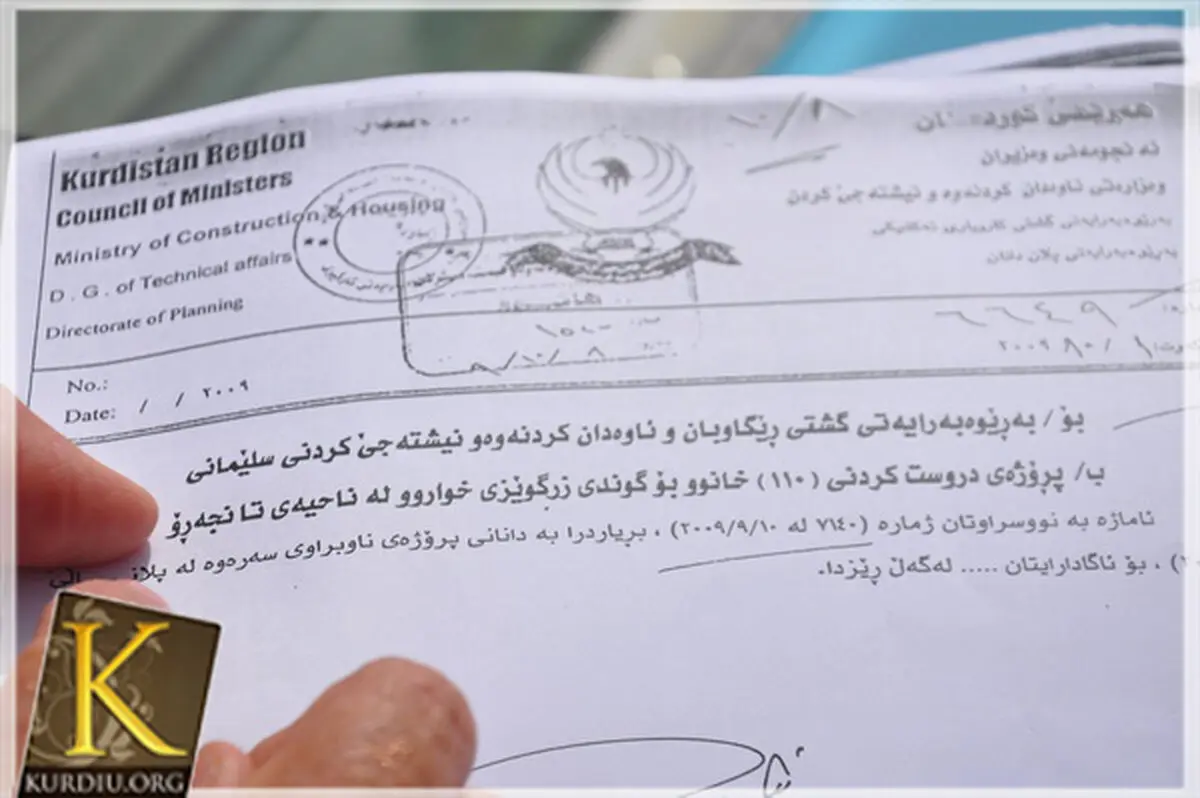 Kurdistan Region
Council of Ministers
Ministry of Construction & Housing
D . G . of Technical affairs
Directorate of Planning
هەرێمی
ئەنجومەنی وەزیران
وەزارەتی ئاوەدان کردنەوە و نیشتەجێ کردن
بەڕێوەبەرایەتی گشتی کاروباری تەکنیکی
بەڕێوەبەرایەتی پلان دانان
٦٦٤٩
No.:
Date: / / ٢٠٠٩
بۆ / بەڕێوەبەرایەتی گشتی ڕێگاوبان و ئاوەدان کردنەوەو نیشتەجێ کردنی سلێمانی
ب/ پڕۆژەی دروست کردنی (١١٠) خانوو بۆ گوندی زرگوێزی خواروو لە ناحیەی تانجەرۆ
ئاماژە بە نووسراوتان ژمارە (٧١٤٠ لە ٢٠٠٩/٩/١٠) ، بڕیاردرا بە دانانی پرۆژەی ناوبراوی سەرەوە لە
) ، بۆ ئاگادارایتان ..... لەگەڵ ڕێزدا.
K
KURDIU.ORG